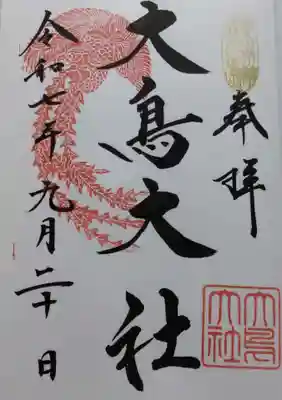 奉拝
大鳥大社
令和七年九月二十日
大鳥大社